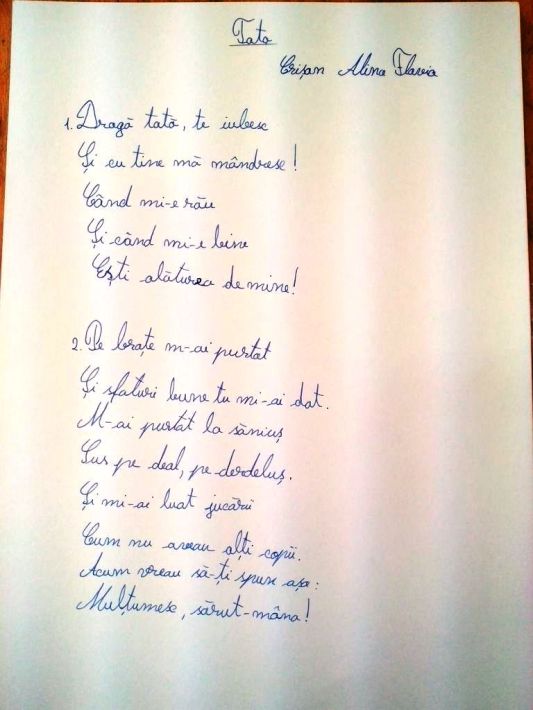 Tata
Crișan Alina Flavia
1. Dragă tată, te iubesc
Și cu tine mă mândresc!
Când mi-e rău
Și când mi-e bine
Ești alăturea de mine!
2. Pe brațe m-ai purtat
Și sfaturi bune tu mi-ai dat.
M-ai purtat la săniuș
Sus pe deal, pe-derdeluș.
Și mi-ai luat jucării
Cum nu aveau alți copii.
Acum vreau să-ți spun așa:
Mulțumesc, sărut-mâna!